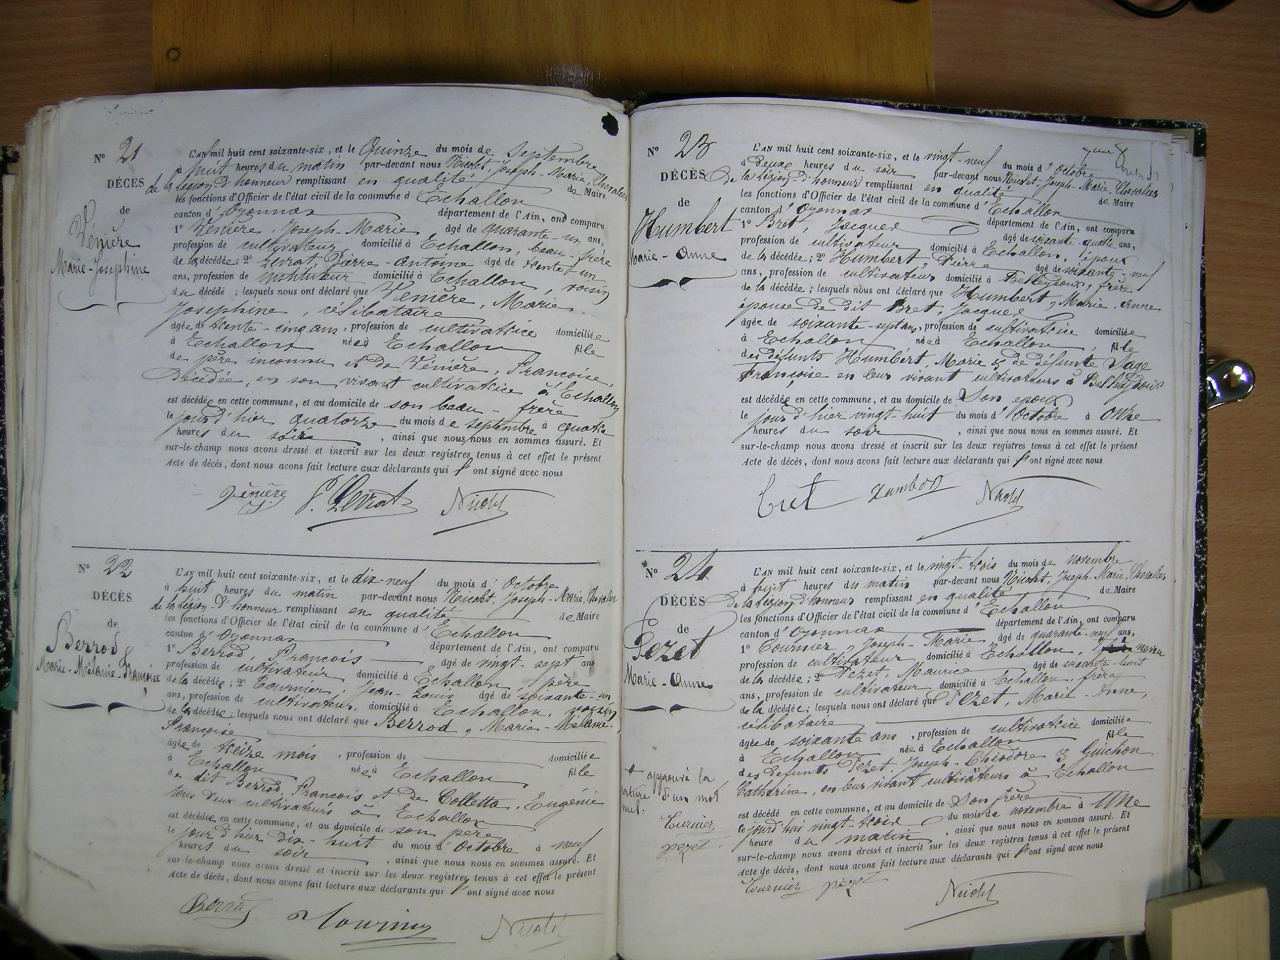 N° 21
DÉCÈS
de
Vénière
Marie-Josephine
L'AN mil huit cent soixante-six, et le Quinze du mois de Septembre
à huit heures du matin par-devant nous Nicolet, Joseph-Marie, Chevalier
de la Légion d'honneur remplissant en qualité de Maire
les fonctions d'Officier de l'état civil de la commune d'Echallon
canton d'Oyonnax département de l'Ain, ont comparu
1° Vénière, Joseph-Marie âgé de quarante-un ans,
profession de cultivateur domicilié à Echallon, beau-frère
de la décédée; 2° Levrat, Pierre-Antoine âgé de trente-un
ans, profession de instituteur domicilié à Echallon, voisin
du décédé; lesquels nous ont déclaré que Vénière, Marie-
Josephine, célibataire
âgée de trente-cinq ans, profession de cultivatrice domiciliée
à Echallon née à Echallon fille
de père inconnu et de Vénière, Françoise,
décédée, en son vivant cultivatrice à Echallon
est décédée en cette commune, et au domicile de son beau-frère
le jour d'hier quatorze du mois de septembre à quatre
heures du soir, ainsi que nous nous en sommes assuré. Et
sur-le-champ nous avons dressé et inscrit sur les deux registres tenus à cet effet le présent
acte de décès, dont nous avons fait lecture aux déclarants qui l'ont signé avec nous
Vénière P. Levrat Nicolet
N° 22
DÉCÈS
de
Berrod
Marie-Mélanie-Françoise
L'AN mil huit cent soixante-six, et le dix-neuf du mois d'Octobre
à huit heures du matin par-devant nous Nicolet, Joseph-Marie, Chevalier
de la Légion d'honneur remplissant en qualité de Maire
les fonctions d'Officier de l'état civil de la commune d'Echallon
canton d'Oyonnax département de l'Ain, ont comparu
1° Berrod, François âgé de vingt-sept ans
profession de cultivateur domicilié à Echallon, père
de la décédée; 2° Tournier, Jean-Louis âgé de soixante-un
ans, profession de cultivateur domicilié à Echallon, voisin
de la décédée; lesquels nous ont déclaré que Berrod, Marie-Mélanie-
Françoise
âgée de treize mois, profession de domiciliée
à Echallon née à Echallon fille
de dit Berrod, François et de Colletta, Eugénie
tous deux cultivateurs à Echallon
est décédée en cette commune, et au domicile de son père
le jour d'hier dix-huit du mois d'Octobre à neuf
heures du soir, ainsi que nous nous en sommes assuré. Et
sur-le-champ nous avons dressé et inscrit sur les deux registres tenus à cet effet le présent
acte de décès, dont nous avons fait lecture aux déclarants qui l'ont signé avec nous
Berrod Tournier Nicolet
N° 23
DÉCÈS
de
Humbert
Marie-Anne
L'AN mil huit cent soixante-six, et le vingt-neuf du mois d'Octobre
à Deux heures du soir par-devant nous Nicolet, Joseph-Marie, Chevalier
de la Légion d'honneur remplissant en qualité de Maire
les fonctions d'Officier de l'état civil de la commune d'Echallon
canton d'Oyonnax département de l'Ain, ont comparu
1° Bret, Jacques âgé de soixante-quatre ans,
profession de cultivateur domicilié à Echallon, époux
de la décédée; 2° Humbert, Pierre âgé de soixante-neuf
ans, profession de cultivateur domicilié à Belleydoux, frère
de la décédée; lesquels nous ont déclaré que Humbert, Marie-Anne
épouse de dit Bret, Jacques
âgée de soixante-sept ans, profession de cultivatrice domiciliée
à Echallon née à Echallon, fille
des défunts Humbert, Marie et de défunte Sage
Françoise en leur vivant cultivateurs à Belleydoux
est décédée en cette commune, et au domicile de Son époux
le jour d'hier vingt huit du mois d'Octobre à Onze
heures du soir, ainsi que nous nous en sommes assuré. Et
sur-le-champ nous avons dressé et inscrit sur les deux registres tenus à cet effet le présent
acte de décès, dont nous avons fait lecture aux déclarants qui l'ont signé avec nous
Bret Humbert Nicolet
N° 24
DÉCÈS
de
Pezet
Marie-Anne
L'AN mil huit cent soixante-six, et le vingt-trois du mois de novembre
à sept heures du matin par-devant nous Nicolet, Joseph-Marie, Chevalier
de la Légion d'honneur remplissant en qualité de Maire
les fonctions d'Officier de l'état civil de la commune d'Echallon
canton d'Oyonnax département de l'Ain, ont comparu
1° Tournier, Joseph-Marie âgé de quarante-neuf ans,
profession de cultivateur domicilié à Echallon,
de la décédée; 2° Pezet, Maurice âgé de soixante-huit
ans, profession de cultivateur domicilié à Echallon, frère
de la décédée; lesquels nous ont déclaré que Pezet, Marie Anne,
célibataire
âgée de soixante ans, profession de cultivatrice domiciliée
à Echallon née à Echallon fille
des défunts Pezet, Joseph-Théodore et Guichon
Catherine, en leur vivant cultivateurs à Echallon
est décédée en cette commune, et au domicile de Son frère
le jourd'hui vingt-trois du mois de novembre à Une
heure du matin, ainsi que nous nous en sommes assuré. Et
sur-le-champ nous avons dressé et inscrit sur les deux registres tenus à cet effet le présent
acte de décès, dont nous avons fait lecture aux déclarants qui l'ont signé avec nous
Tournier pezet Nicolet
approuvé la
rature d'un mot
nul.
Turnier
pezet